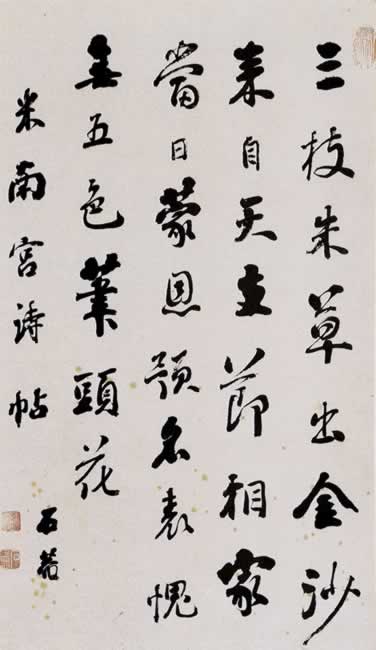 三枝朱草出金沙
来自天支節相家
當日蒙恩預名表愧
無五色筆頭花
米南宫詩帖
石菴